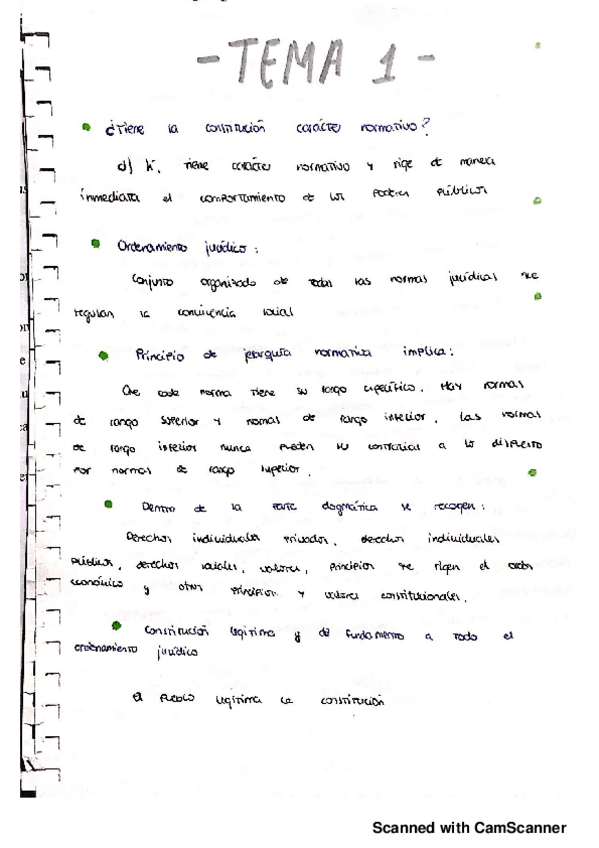 - TEMA 1 -
¿Tiene la constitución carácter normativo?
d) tiene carácter normativo y rige de manera
inmediata el comportamiento de los Poderes Públicos
Ordenamiento jurídico:
Conjunto organizado de todas las normas jurídicas que
regulan la convivencia social
Principio de jerarquía normativa implica:
Que cada norma tiene su rango específico. Hay normas
de rango superior y normas de rango inferior. Las normas
de rango inferior nunca pueden ser contrarias a lo dispuesto
por normas de rango superior.
Dentro de la parte dogmática se recogen:
Derechos individuales privados, derechos individuales
públicos, derechos sociales, valores, principios que rigen el orden
económico y otros principios y valores constitucionales.
Constitución legitima y da fundamento a todo el
ordenamiento jurídico
El pueblo legitima la constitución
Scanned with CamScanner